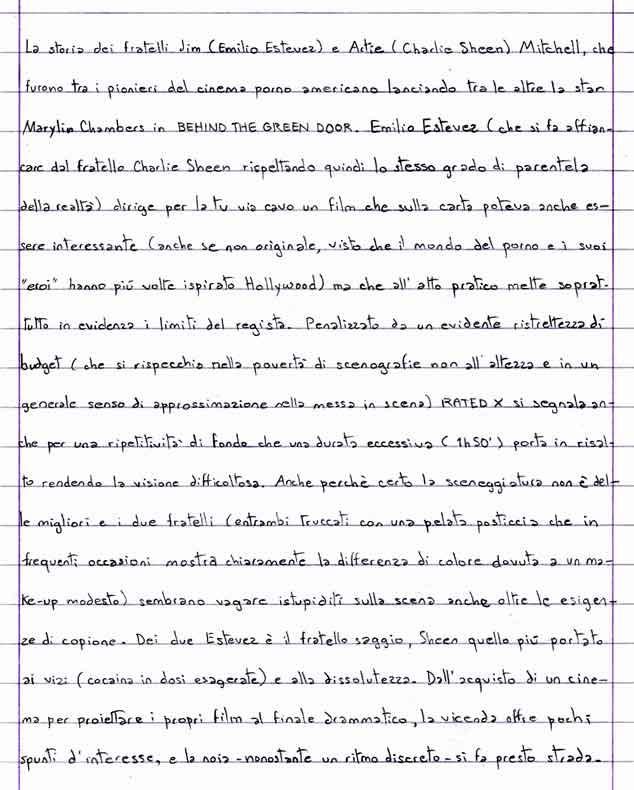 La storia dei fratelli Jim (Emilio Estevez) e Artie (Charlie Sheen) Mitchell, che
furono tra i pionieri del cinema porno americano lanciando tra le altre la star
Marylin Chambers in BEHIND THE GREEN DOOR. Emilio Estevez (che si fa affian-
care dal fratello Charlie Sheen rispettando quindi lo stesso grado di parentela
della realtà) dirige per la tv via cavo un film che sulla carta poteva anche es-
sere interessante (anche se non originale, visto che il mondo del porno e i suoi
"eroi" hanno più volte ispirato Hollywood) ma che all'atto pratico mette soprat-
tutto in evidenza i limiti del regista. Penalizzato da un evidente ristrettezza di
budget (che si rispecchia nella povertà di scenografie non all'altezza e in un
generale senso di approssimazione nella messa in scena) RATED X si segnala an-
che per una ripetitività di fondo che una durata eccessiva (1h50') porta in risal-
to rendendo la visione difficoltosa. Anche perchè certo la sceneggiatura non è del-
le migliori e i due fratelli (entrambi truccati con una pelata posticcia che in
frequenti occasioni mostra chiaramente la differenza di colore dovuta a un ma-
ke-up modesto) sembrano vagare istupiditi sulla scena anche oltre le esigen-
ze di copione. Dei due Estevez è il fratello saggio, Sheen quello più portato
ai vizi (cocaina in dosi esagerate) e alla dissolutezza. Dall'acquisto di un cine-
ma per proiettare i propri film al finale drammatico, la vicenda offre pochi
spunti d'interesse, e la noia - nonostante un ritmo discreto - si fa presto strada.